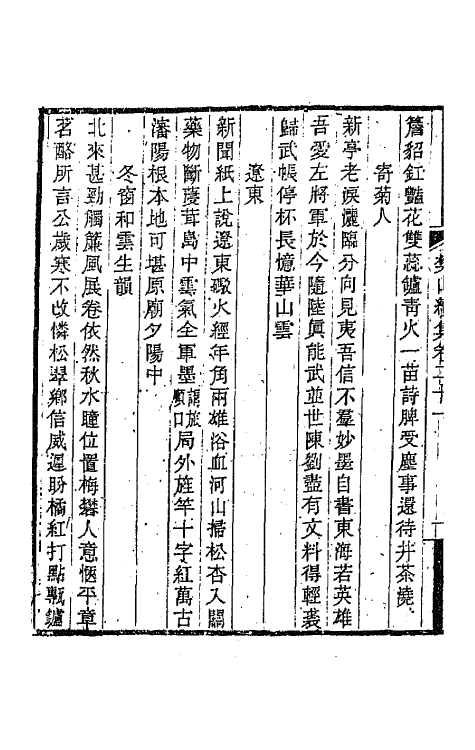 簷貂釭豔花雙蕊鑪靑火一苗詩脾受塵事還待井茶澆
寄菊人
新亭老淚灑臨分向見夷吾信不羣妙墨自書東海若英雄
吾愛左將軍於今隨陸眞能武並世陳劉盡有文料得輕裘
歸武帳停杯長憶華山雲
遼東
新聞紙上說遼東礮火經年角兩雄浴血河山掃松杏入關
藥物斷葠茸島中雲氣全軍墨旅順口局外旌竿十字紅萬古
瀋陽根本地可堪原廟夕陽中
冬窗和雲生韻
北來甚勁觸簾風展卷依然秋水瞳位置梅礬人意愜平章
茗酪所言公歲寒不改憐松翠鄉信威遲盼橘紅打點甎鑪
樊山續集卷二十一